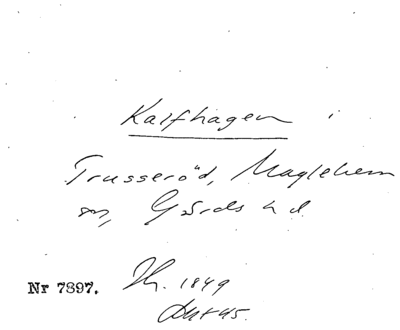 Kalfhagen i
Trusseröd, Maglehem
sn, Gärds hd
Nr 7897. Th. 1849